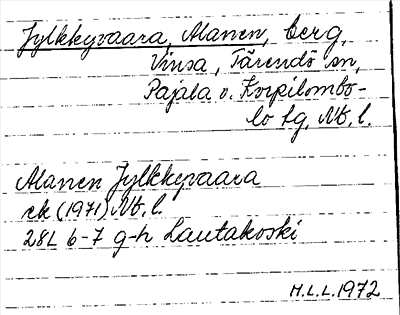 Jylkkyvaara, Alanen, berg,
Vinsa, Tärendö sn,
Pajala o. Korpilombo-
lo tg, Nb. l.
Alanen Jylkkyvaara
ek (1971) Nb. l.
28L 6-7 g-h Lautakoski
H.L.L. 1972